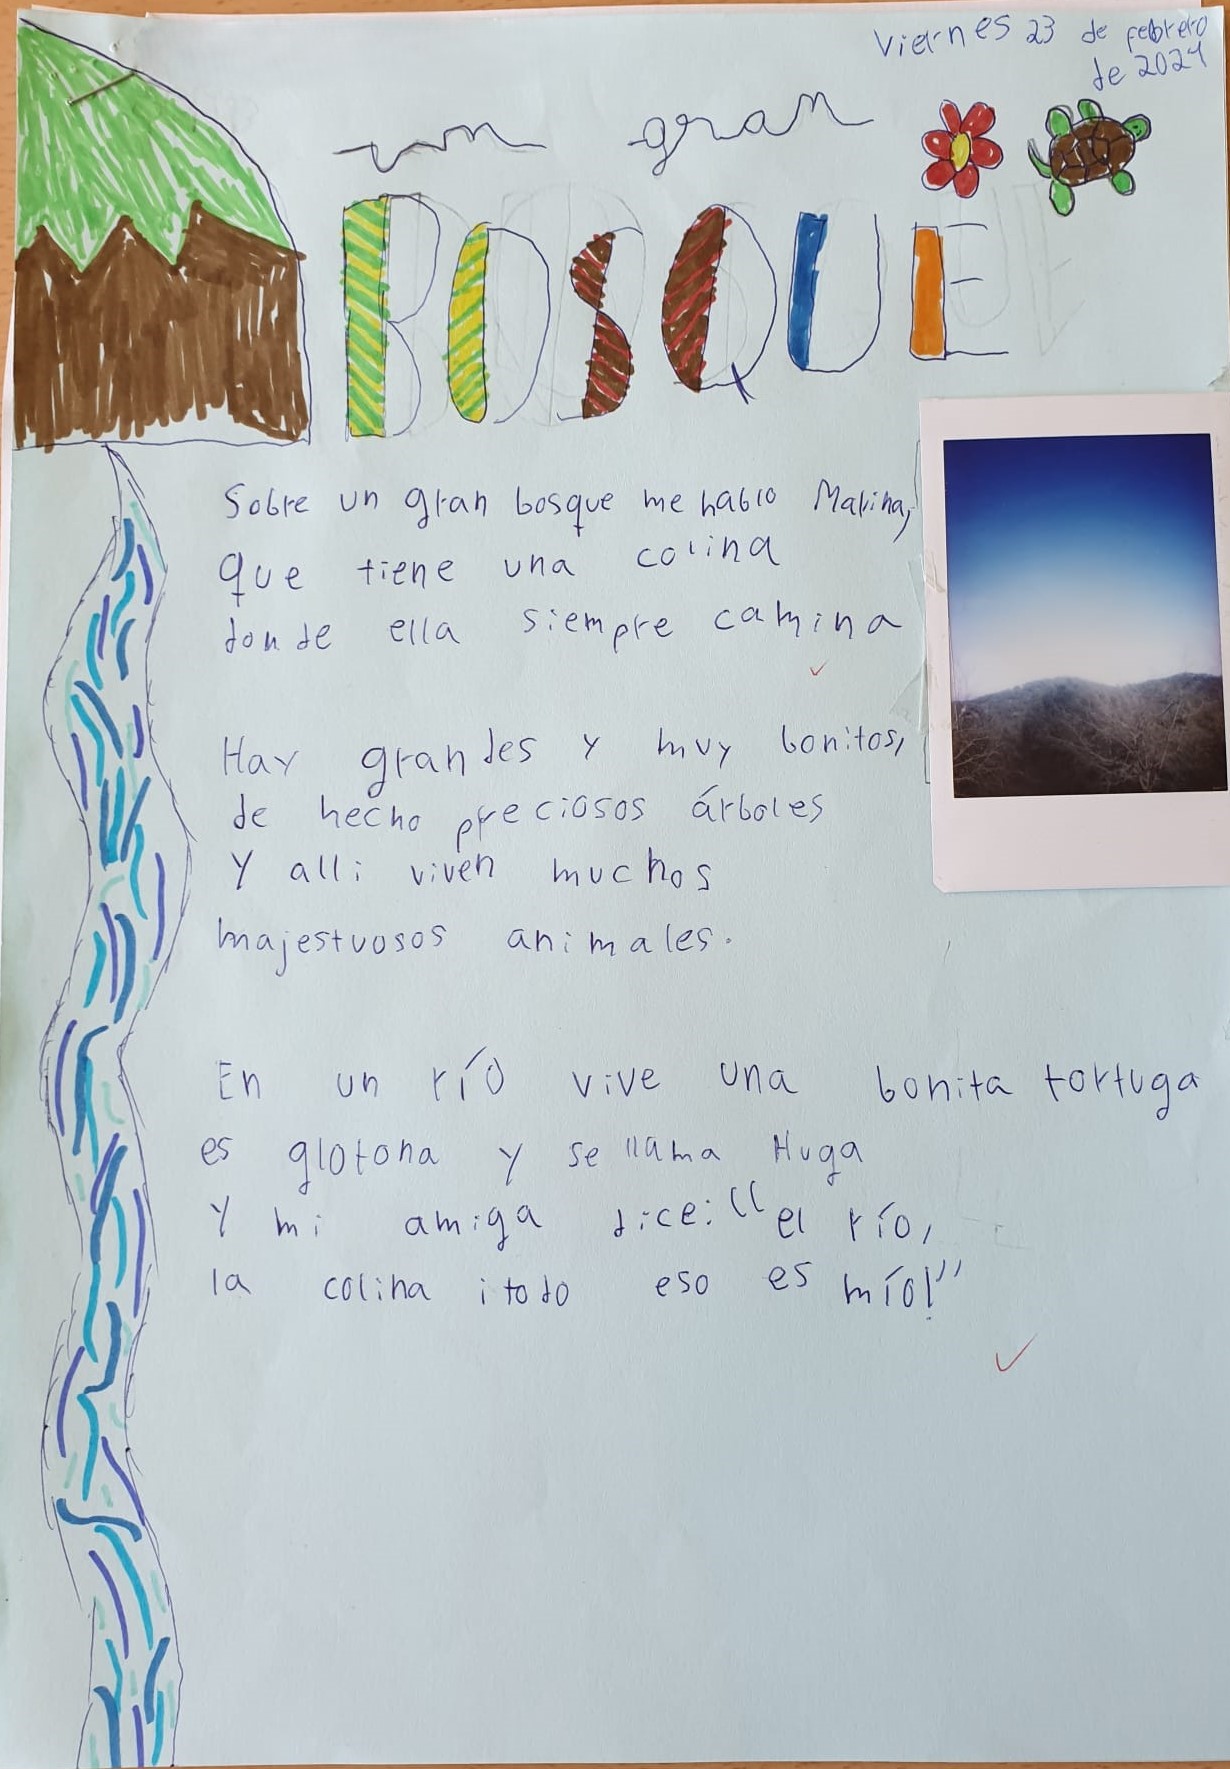 Viernes 23 de febrero
de 2024
un gran
BOSQUE
Sobre un gran bosque me hablo Marina,
que tiene una colina
donde ella siempre camina
Hay grandes y muy bonitos,
de hecho preciosos árboles
Y alli viven muchos
majestuosos animales.
En un río vive una bonita tortuga
es glotona y se llama Huga
Y mi amiga dice: "el río,
la colina ¡todo eso es mío!"